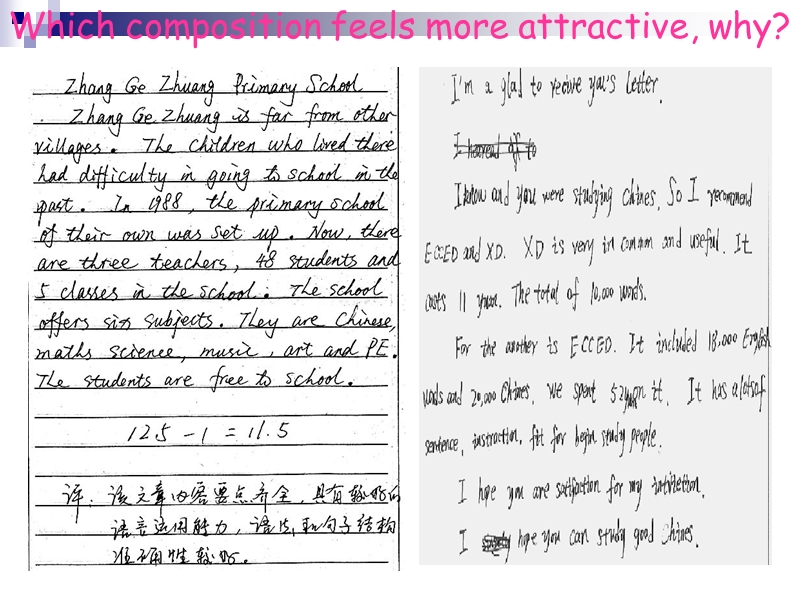 Which composition feels more attractive, why?
Zhang Ge Zhuang Primary School
. Zhang Ge Zhuang is far from other
villages. The children who lived there
had difficulty in going to school in the
past. In 1988, the primary school
of their own was set up. Now, there
are three teachers, 48 students and
5 classes in the school. The school
offers six subjects. They are Chinese,
maths science, music, art and PE.
The students are free to school.
12.5 - 1 = 11.5
评: 该文章内容要点齐全, 具有较好的
语言运用能力, 语法, 和句子结构
准确性较好.
I'm a glad to recive you's letter.
I
I know and you were studying chines. So I recommend
ECCED and XD. XD is very in common and useful. It
costs 11 yuan. The total of 10,000 words.
For the another is ECCED. It included 18,000 English
words and 20,000 Chines. We spent 52yuan it. It has a lots of
sentence, instruction, fit for begin study people.
I hope you are satisfaction for my
I hope you can study good Chines.